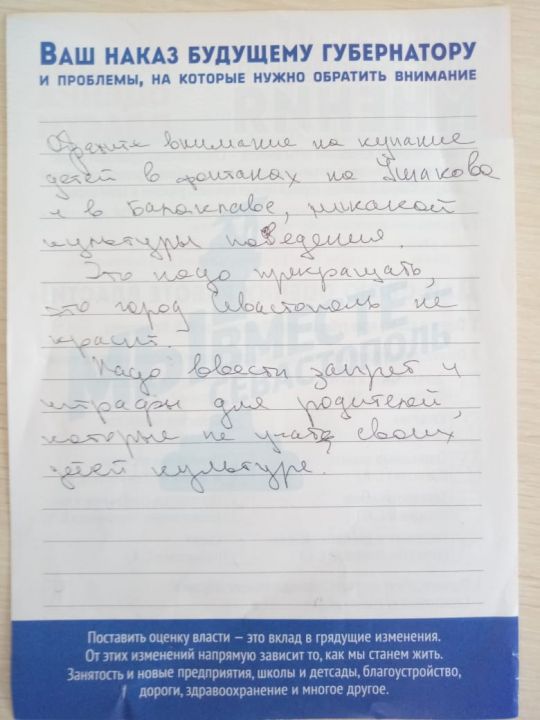 ВАШ НАКАЗ БУДУЩЕМУ ГУБЕРНАТОРУ
И ПРОБЛЕМЫ, НА КОТОРЫЕ НУЖНО ОБРАТИТЬ ВНИМАНИЕ
Обратите внимание на купание
детей в фонтанах на Ушакова
и в Балаклаве, никакой
культуры поведения.
Это надо прекращать,
это город Севастополь не
красит.
Надо ввести запрет и
штрафы для родителей,
которые не учат своих
детей культуре.
МЫ ВМЕСТЕ
СЕВАСТОПОЛЬ
Поставить оценку власти – это вклад в грядущие изменения.
От этих изменений напрямую зависит то, как мы станем жить.
Занятость и новые предприятия, школы и детсады, благоустройство,
дороги, здравоохранение и многое другое.